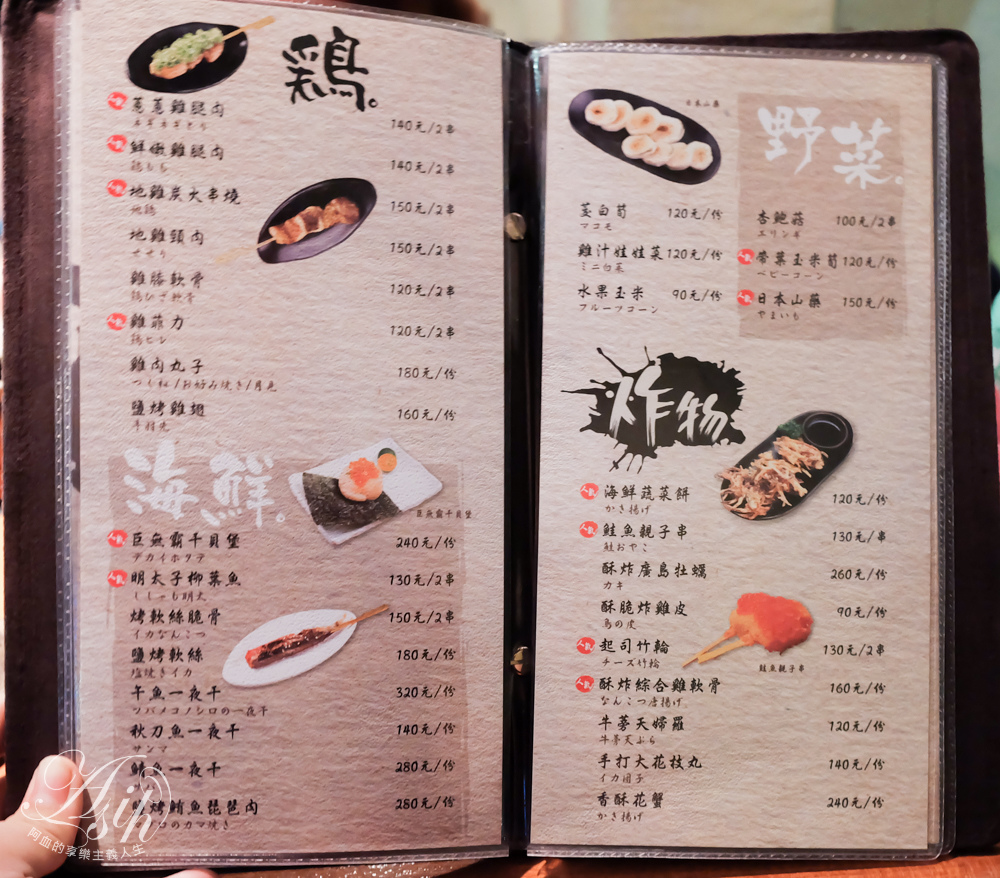 鶏。
人氣 蔥蔥雞腿肉 140元/2串
ネギネギとり
人氣 鮮嫩雞腿肉 140元/2串
鶏もも
人氣 地雞炭火串燒 150元/2串
地鶏
地雞頸肉 150元/2串
せせり
雞膝軟骨 120元/2串
鶏ひざ軟骨
人氣 雞菲力 120元/2串
鶏ヒレ
雞肉丸子 180元/份
つくね/お好み焼き/月見
鹽烤雞翅 160元/份
手羽先
海鮮。
巨無霸干貝堡
人氣 巨無霸干貝堡 240元/份
デカイホタテ
人氣 明太子柳葉魚 130元/2串
ししゃも明太
烤軟絲脆骨 150元/2串
イカなんこつ
鹽烤軟絲 180元/份
塩焼きイカ
午魚一夜干 320元/份
ツバメコノシロの一夜干
秋刀魚一夜干 140元/份
サンマ
鯖魚一夜干 280元/份
鹽烤鮪魚琵琶肉 280元/份
のカマ焼き
日本山藥
野菜。
茭白筍 120元/份
マコモ
雞汁娃娃菜 120元/份
ミニ白菜
水果玉米 90元/份
フルーツコーン
杏鮑菇 100元/2串
エリンギ
人氣 帶葉玉米筍 120元/份
ベビーコーン
人氣 日本山藥 150元/份
やまいも
炸物。
人氣 海鮮蔬菜餅 120元/份
かき揚げ
人氣 鮭魚親子串 130元/串
鮭おやこ
酥炸廣島牡蠣 260元/份
カキ
酥脆炸雞皮 90元/份
鳥の皮
人氣 起司竹輪 130元/2串
チーズ竹輪
鮭魚親子串
人氣 酥炸綜合雞軟骨 160元/份
なんこつ唐揚げ
牛蒡天婦羅 120元/份
牛蒡天ぷら
手打大花枝丸 140元/份
イカ団子
香酥花蟹 240元/份
かき揚げ
Asih
阿血的享樂主義人生